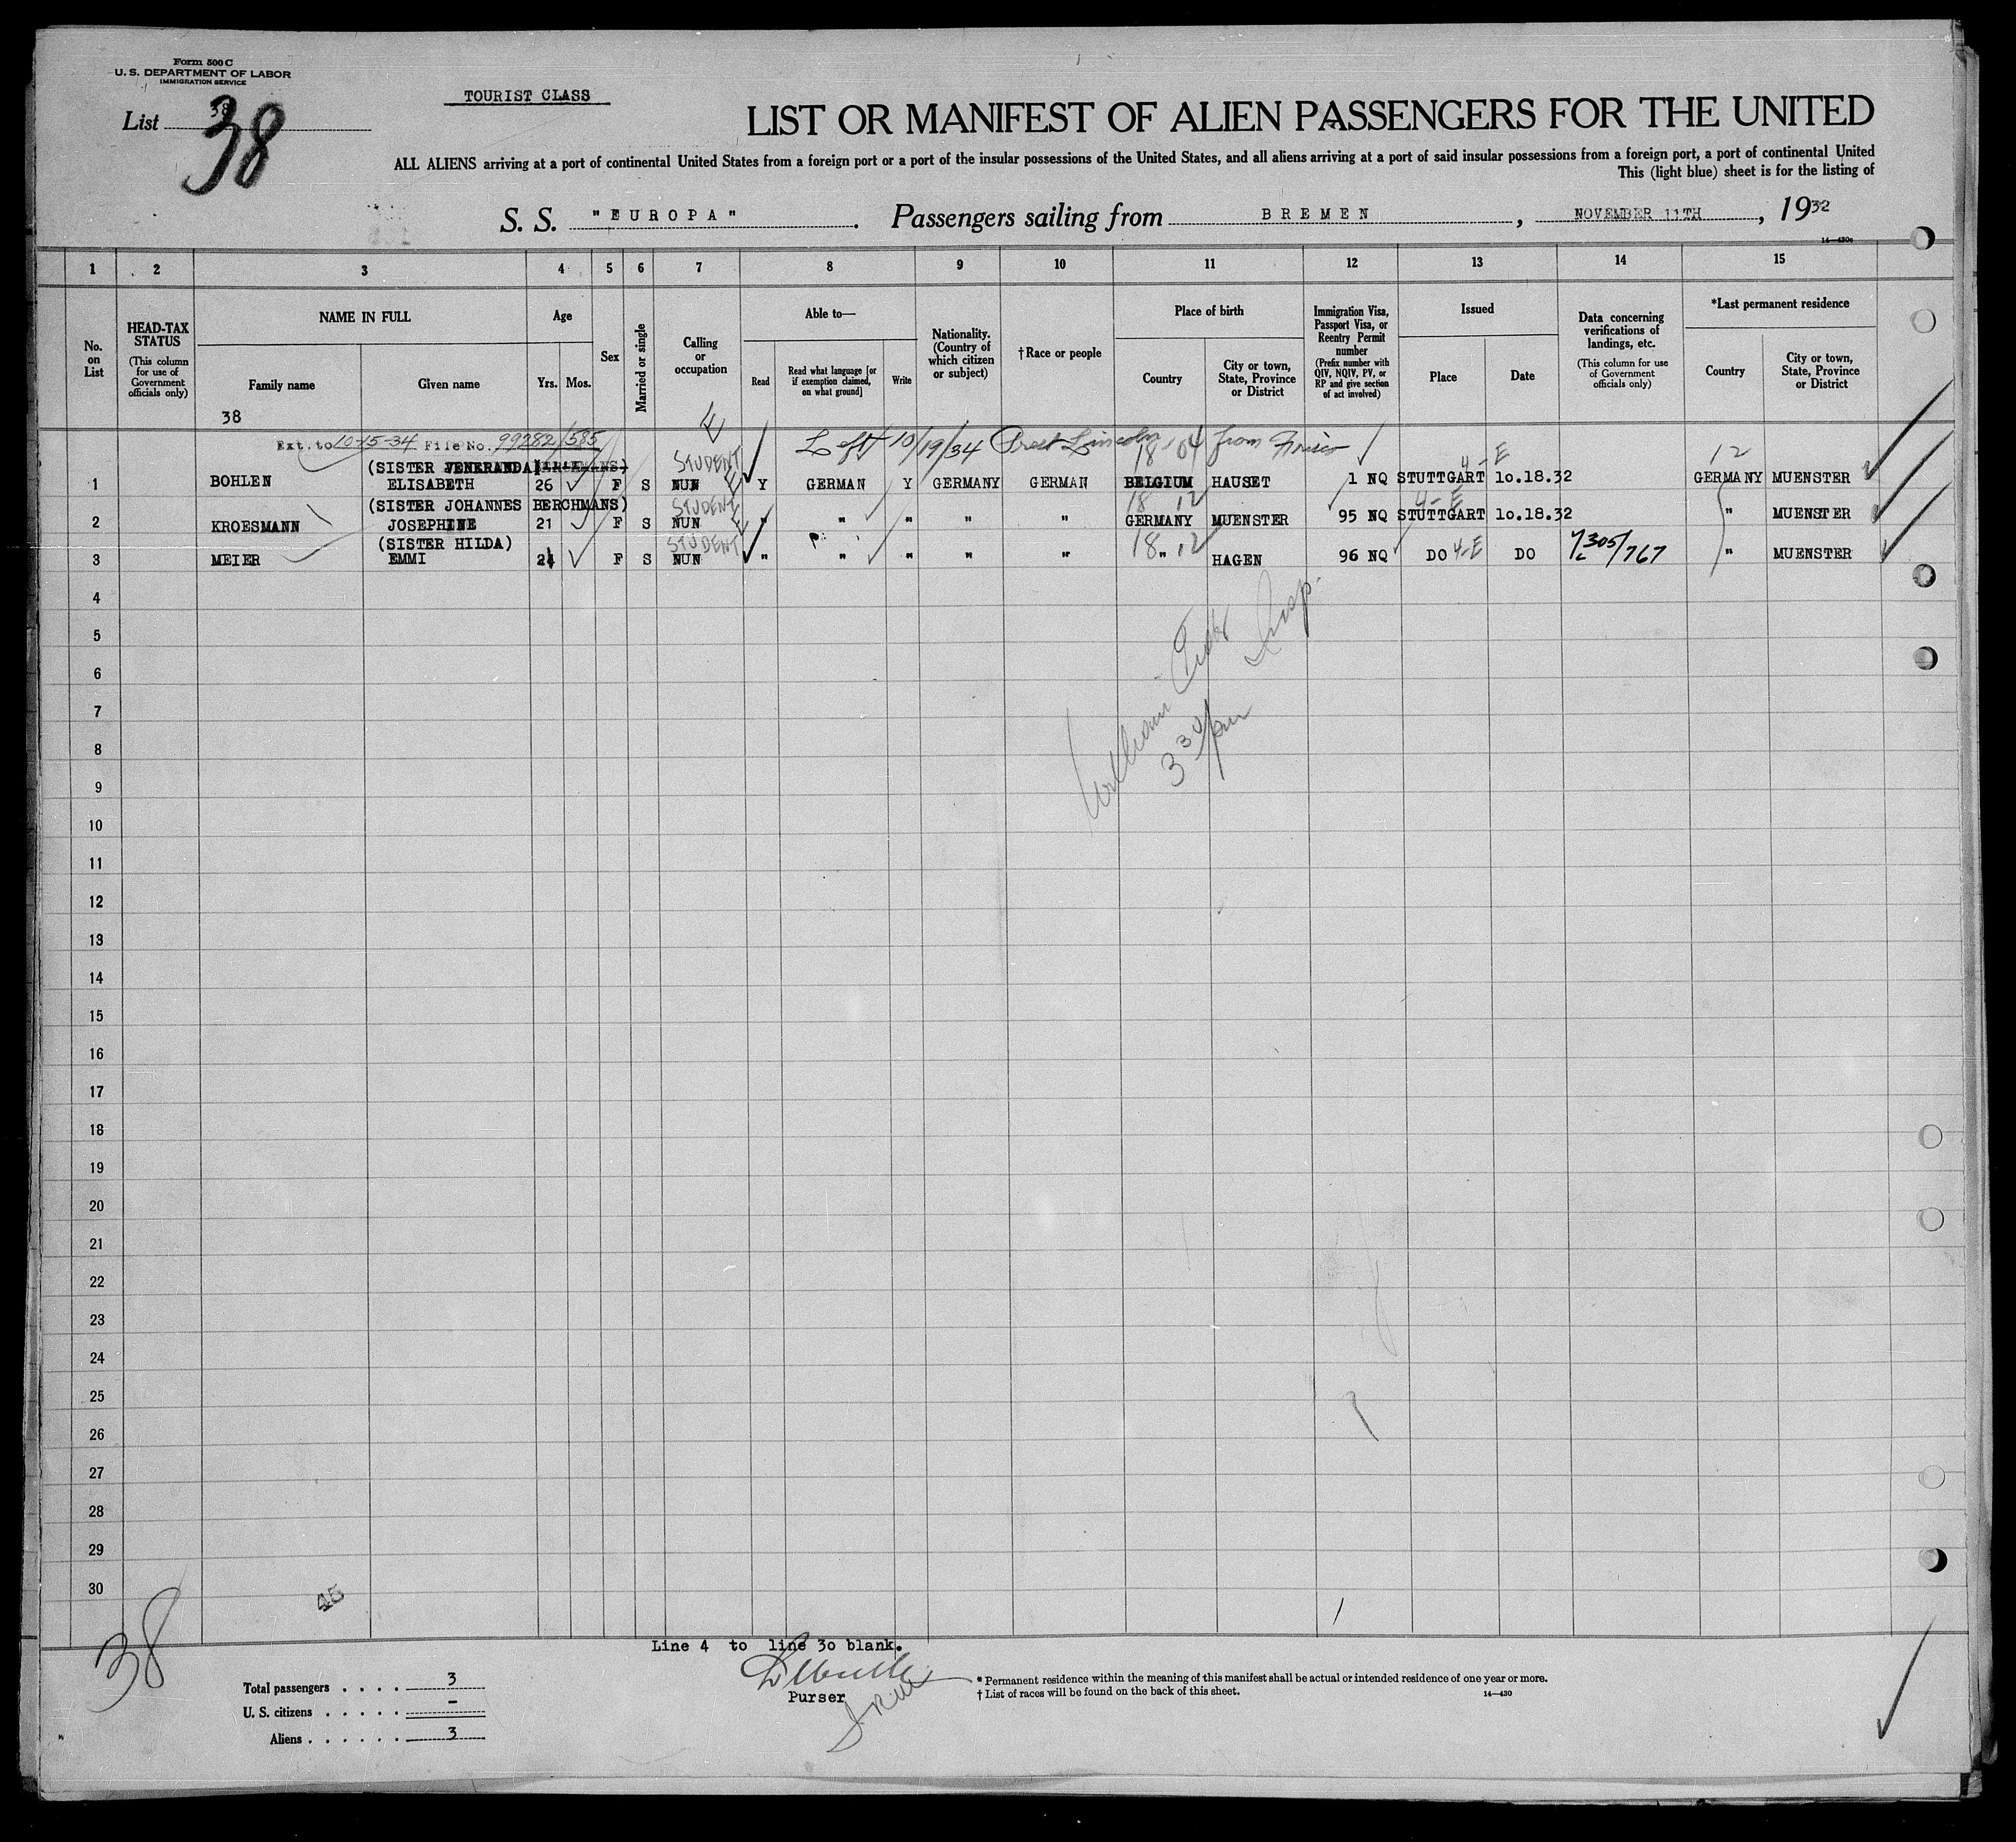 Form 500 C
U. S. DEPARTMENT OF LABOR
IMMIGRATION SERVICE
List 38
38
TOURIST CLASS
LIST OR MANIFEST OF ALIEN PASSENGERS FOR THE UNITED
ALL ALIENS arriving at a port of continental United States from a foreign port or a port of the insular possessions of the United States, and all aliens arriving at a port of said insular possessions from a foreign port, a port of continental United
This (light blue) sheet is for the listing of
S. S. "EUROPA". Passengers sailing from BREMEN, NOVEMBER 11TH, 1932
14—430a
1 2 3 4 5 6 7 8 9 10 11 12 13 14 15
No. on List
HEAD-TAX STATUS (This column for use of Government officials only)
NAME IN FULL
Family name
Given name
Age
Yrs. Mos.
Sex
Married or single
Calling or occupation
Able to—
Read
Read what language [or if exemption claimed, on what ground]
Write
Nationality. (Country of which citizen or subject)
† Race or people
Place of birth
Country
City or town, State, Province or District
Immigration Visa, Passport Visa, or Reentry Permit number (Prefix number with QIV, NQIV, PV, or RP and give section of act involved)
Issued
Place
Date
Data concerning verifications of landings, etc. (This column for use of Government officials only)
*Last permanent residence
Country
City or town, State, Province or District
38
Ext. to 10-15-34 File No. 99282/585 Left 10/19/34 Prest Lincoln from Frisco
(SISTER VENERANDA) STUDENT 18 04 4-E 12
1 BOHLEN ELISABETH 26 F S NUN Y GERMAN Y GERMANY GERMAN BELGIUM HAUSET 1 NQ STUTTGART 10.18.32 GERMANY MUENSTER
(SISTER JOHANNES BERCHMANS) STUDENT 18 12 4-E
2 KROESMANN JOSEPHINE 21 F S NUN " " " " " GERMANY MUENSTER 95 NQ STUTTGART 10.18.32 " MUENSTER
(SISTER HILDA) STUDENT 18 12
3 MEIER EMMI 24 F S NUN " " " " " " HAGEN 96 NQ DO 4-E DO 305/767 " MUENSTER
4
5
6
7
8
9
10
11
12
13
14
15
16
17
18
19
20
21
22
23
24
25
26
27
28
29
30
William Insp.
3 30/pm
45
38
Line 4 to line 30 blank.
Purser
Total passengers . . . . 3
U. S. citizens . . . . . –
Aliens . . . . . . 3
* Permanent residence within the meaning of this manifest shall be actual or intended residence of one year or more.
† List of races will be found on the back of this sheet.
14—430